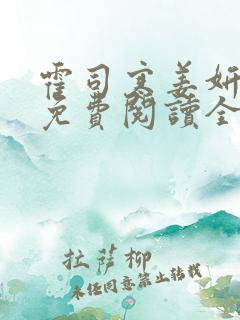 霍司宴姜妍
免費閱讀全
拉薩柳
未经同意禁止转载